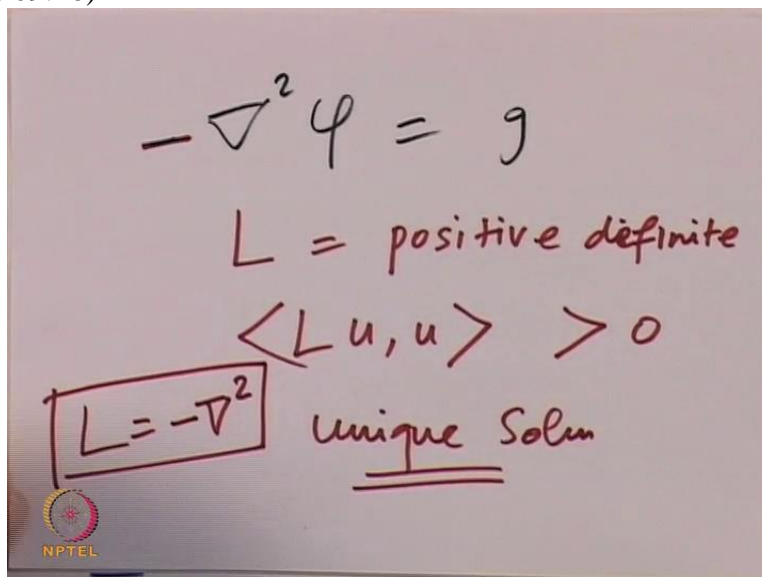 - ∇² φ = g
L = positive definite
<Lu, u> > 0
L = -∇²
unique Soln
NPTEL